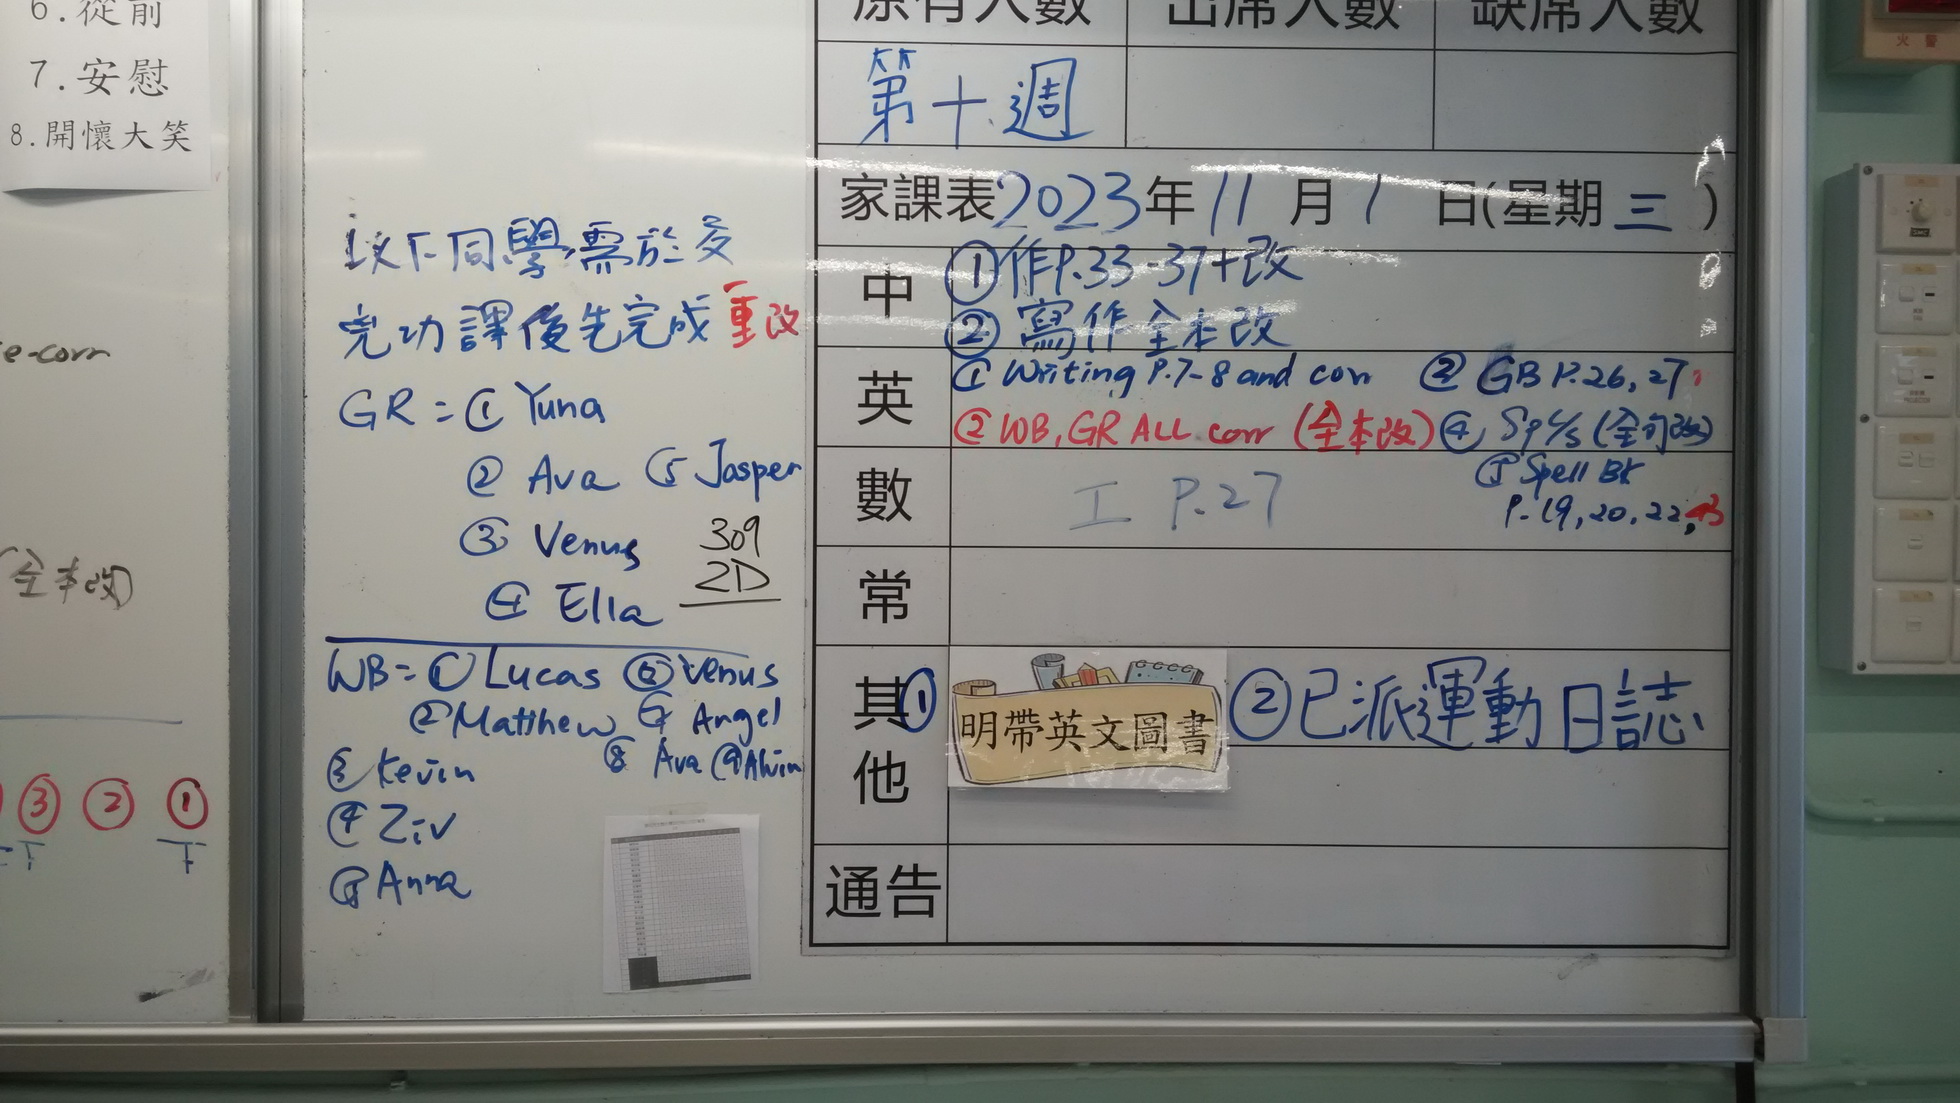 6.從前
7.安慰
8.開懷大笑
e-corr
(全本改)
③ ② ①
下 下
以下同學需於交
完功課後先完成重改
GR = ① Yuna
② Ava ⑤ Jasper
③ Venus
④ Ella
309
2D
WB = ① Lucas ⑥ Venus
② Matthew ⑦ Angel
③ Kevin ⑧ Ava ⑨ Alvin
④ Ziv
⑤ Anna
原有人數 出席人數 缺席人數
第十週
家課表 2023 年 11 月 1 日(星期 三 )
中 ① 作P.33-37+改
② 寫作全本改
英 ① Writing P.7-8 and corr ② GB P.26, 27
② WB, GR ALL corr (全本改) ④ Sp 4/5 (全句改)
⑤ Spell Bk
P.19, 20, 22,
數 工 P.27
常
其他 ① 明帶英文圖書 ② 已派運動日誌
通告
火警